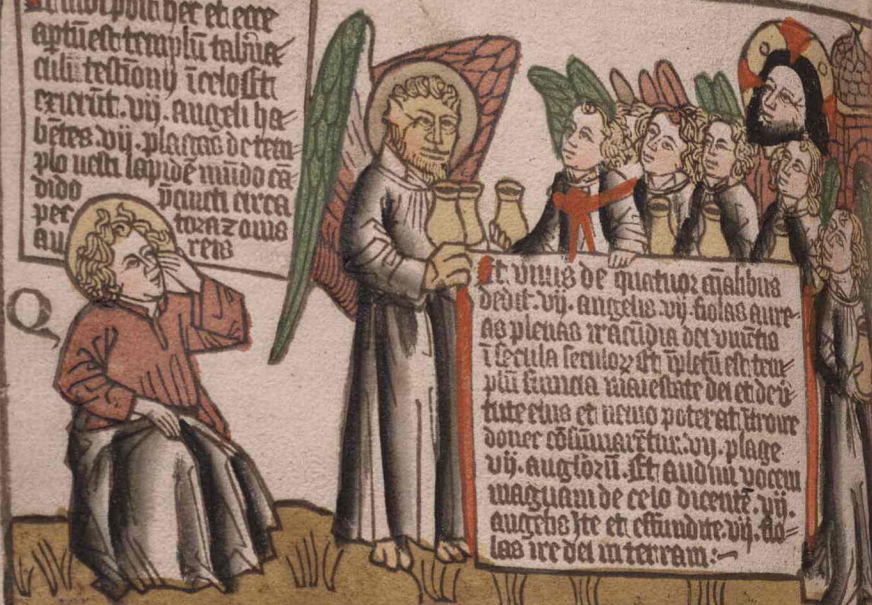 hec et ecce
aptū est templū tab̄na
culi testīony ī celo Et
exierūt .vij. angeli ha
bētes .vij. plagas de tem
plo vesti lapidē mūdo cā
dido p̄cincti circa
pec tora zonis
au reis
Q
Et vnus de quatuor aīalibus
dedit .vij. angelis .vij. fiolas aure
as plenas iracūdia dei viuētis
ī secula seculoꝝ Et īpletū est tem
plū fumo a maiestate dei et de v̄
tute eius et nemo poterat ītroire
donec cōsūmarētur .vij. plage
.vij. angloꝝ. Et audiui vocem
magnam de celo dicentē .vij.
angelis Ite et effundite .vij. fio
las ire dei in terram